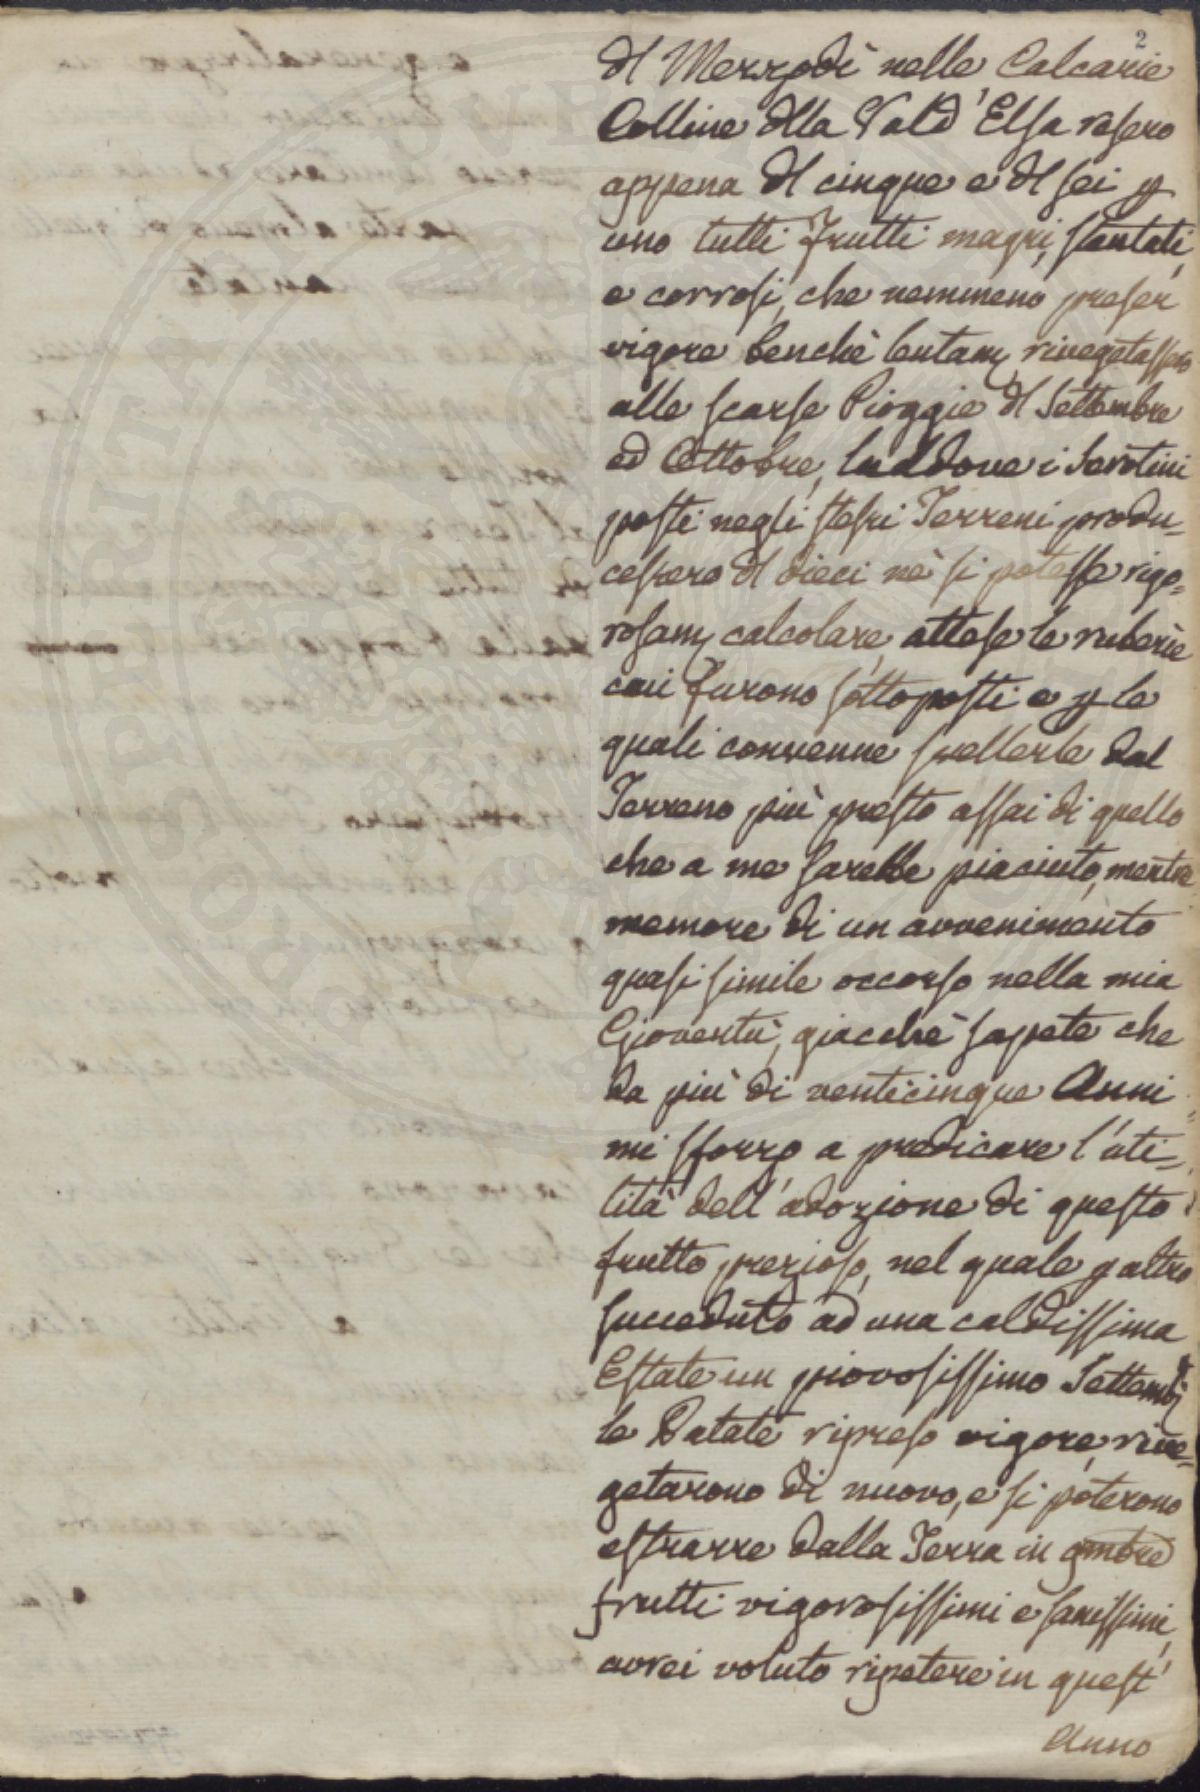 2
dl Mezzodì nelle Calcarie
Colline dlla Vald' Elsa resero
appena dl cinque e dl sei p
uno tutti frutti magri, stentati,
e corrosi, che nemmeno preser
vigore benchè lentam rivegetassero
alle scarse Pioggie dl Settembre
ed Ottobre, laddove i Serotini
posti negli stessi Terreni produ-
cessero dl dieci nè si potesse rigo-
rosam calcolare, attese le ruberie
cui furono sottoposti e p le
quali convenne svellerle dal
Terreno più presto assai di quello
che a me sarebbe piaciuto, mentre
memore di un avvenimento
quasi simile occorso nella mia
Gioventù, giacchè sapete che
da più di venticinque Anni
mi sforzo a predicare l'uti-
lità dell'adozione di questo
frutto prezioso, nel quale p altro
succeduto ad una caldissima
Estate un piovosissimo Settemb
le Patate ripreso vigore, rive-
getarono di nuovo, e si poterono
estrarre dalla Terra in
frutti vigorosissimi e sanissimi,
avrei voluto ripetere in quest'
Anno